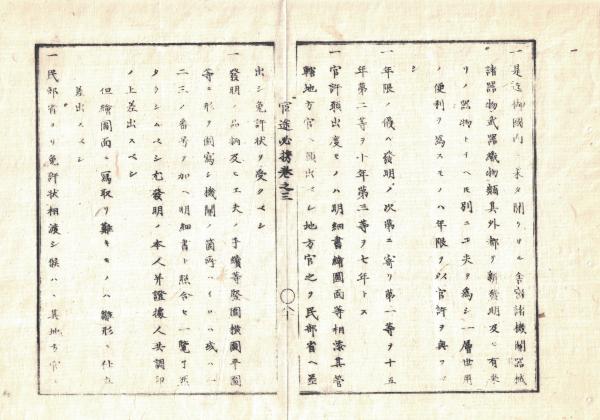 一是迄御國内ニ未タ開ケサル舎密諸機關器械
諸器物武器織物類其外都テ新發明及ヒ有来
リノ器物トイヘ𪜈別ニ工夫ヲ為シ一層世用
ノ便利ヲ為スモノハ年限ヲ以官許ヲ與フヘ
シ
一年限ノ儀ハ發明ノ次第ニ寄リ第一等ヲ十五
年第二等ヲ十年第三等ヲ七年トス
一官許願出度モノハ明細書繪圖面等相添其管
轄地方官ヘ願出ヘシ地方官之ヲ民部省ヘ差
官途必携巻之三
八十
出シ免許状ヲ受クヘシ
一發明ノ品柄及ヒ工夫ノ手續等竪圖横圖平圖
等ニ形ヲ圖寫シ機關ノ箇所ハイロハ或ハ一
二三ノ番号ヲ加ヘ明細書ト照合セ一覧了然
タラシムヘシ尤發明ノ本人并證據人共調印
ノ上差出スヘシ
但繪圖面ニ寫取リ難キモノハ雛形ヲ仕立
差出スヘシ
一民部省ヨリ免許状相渡シ候ハヽ其地方官ニ